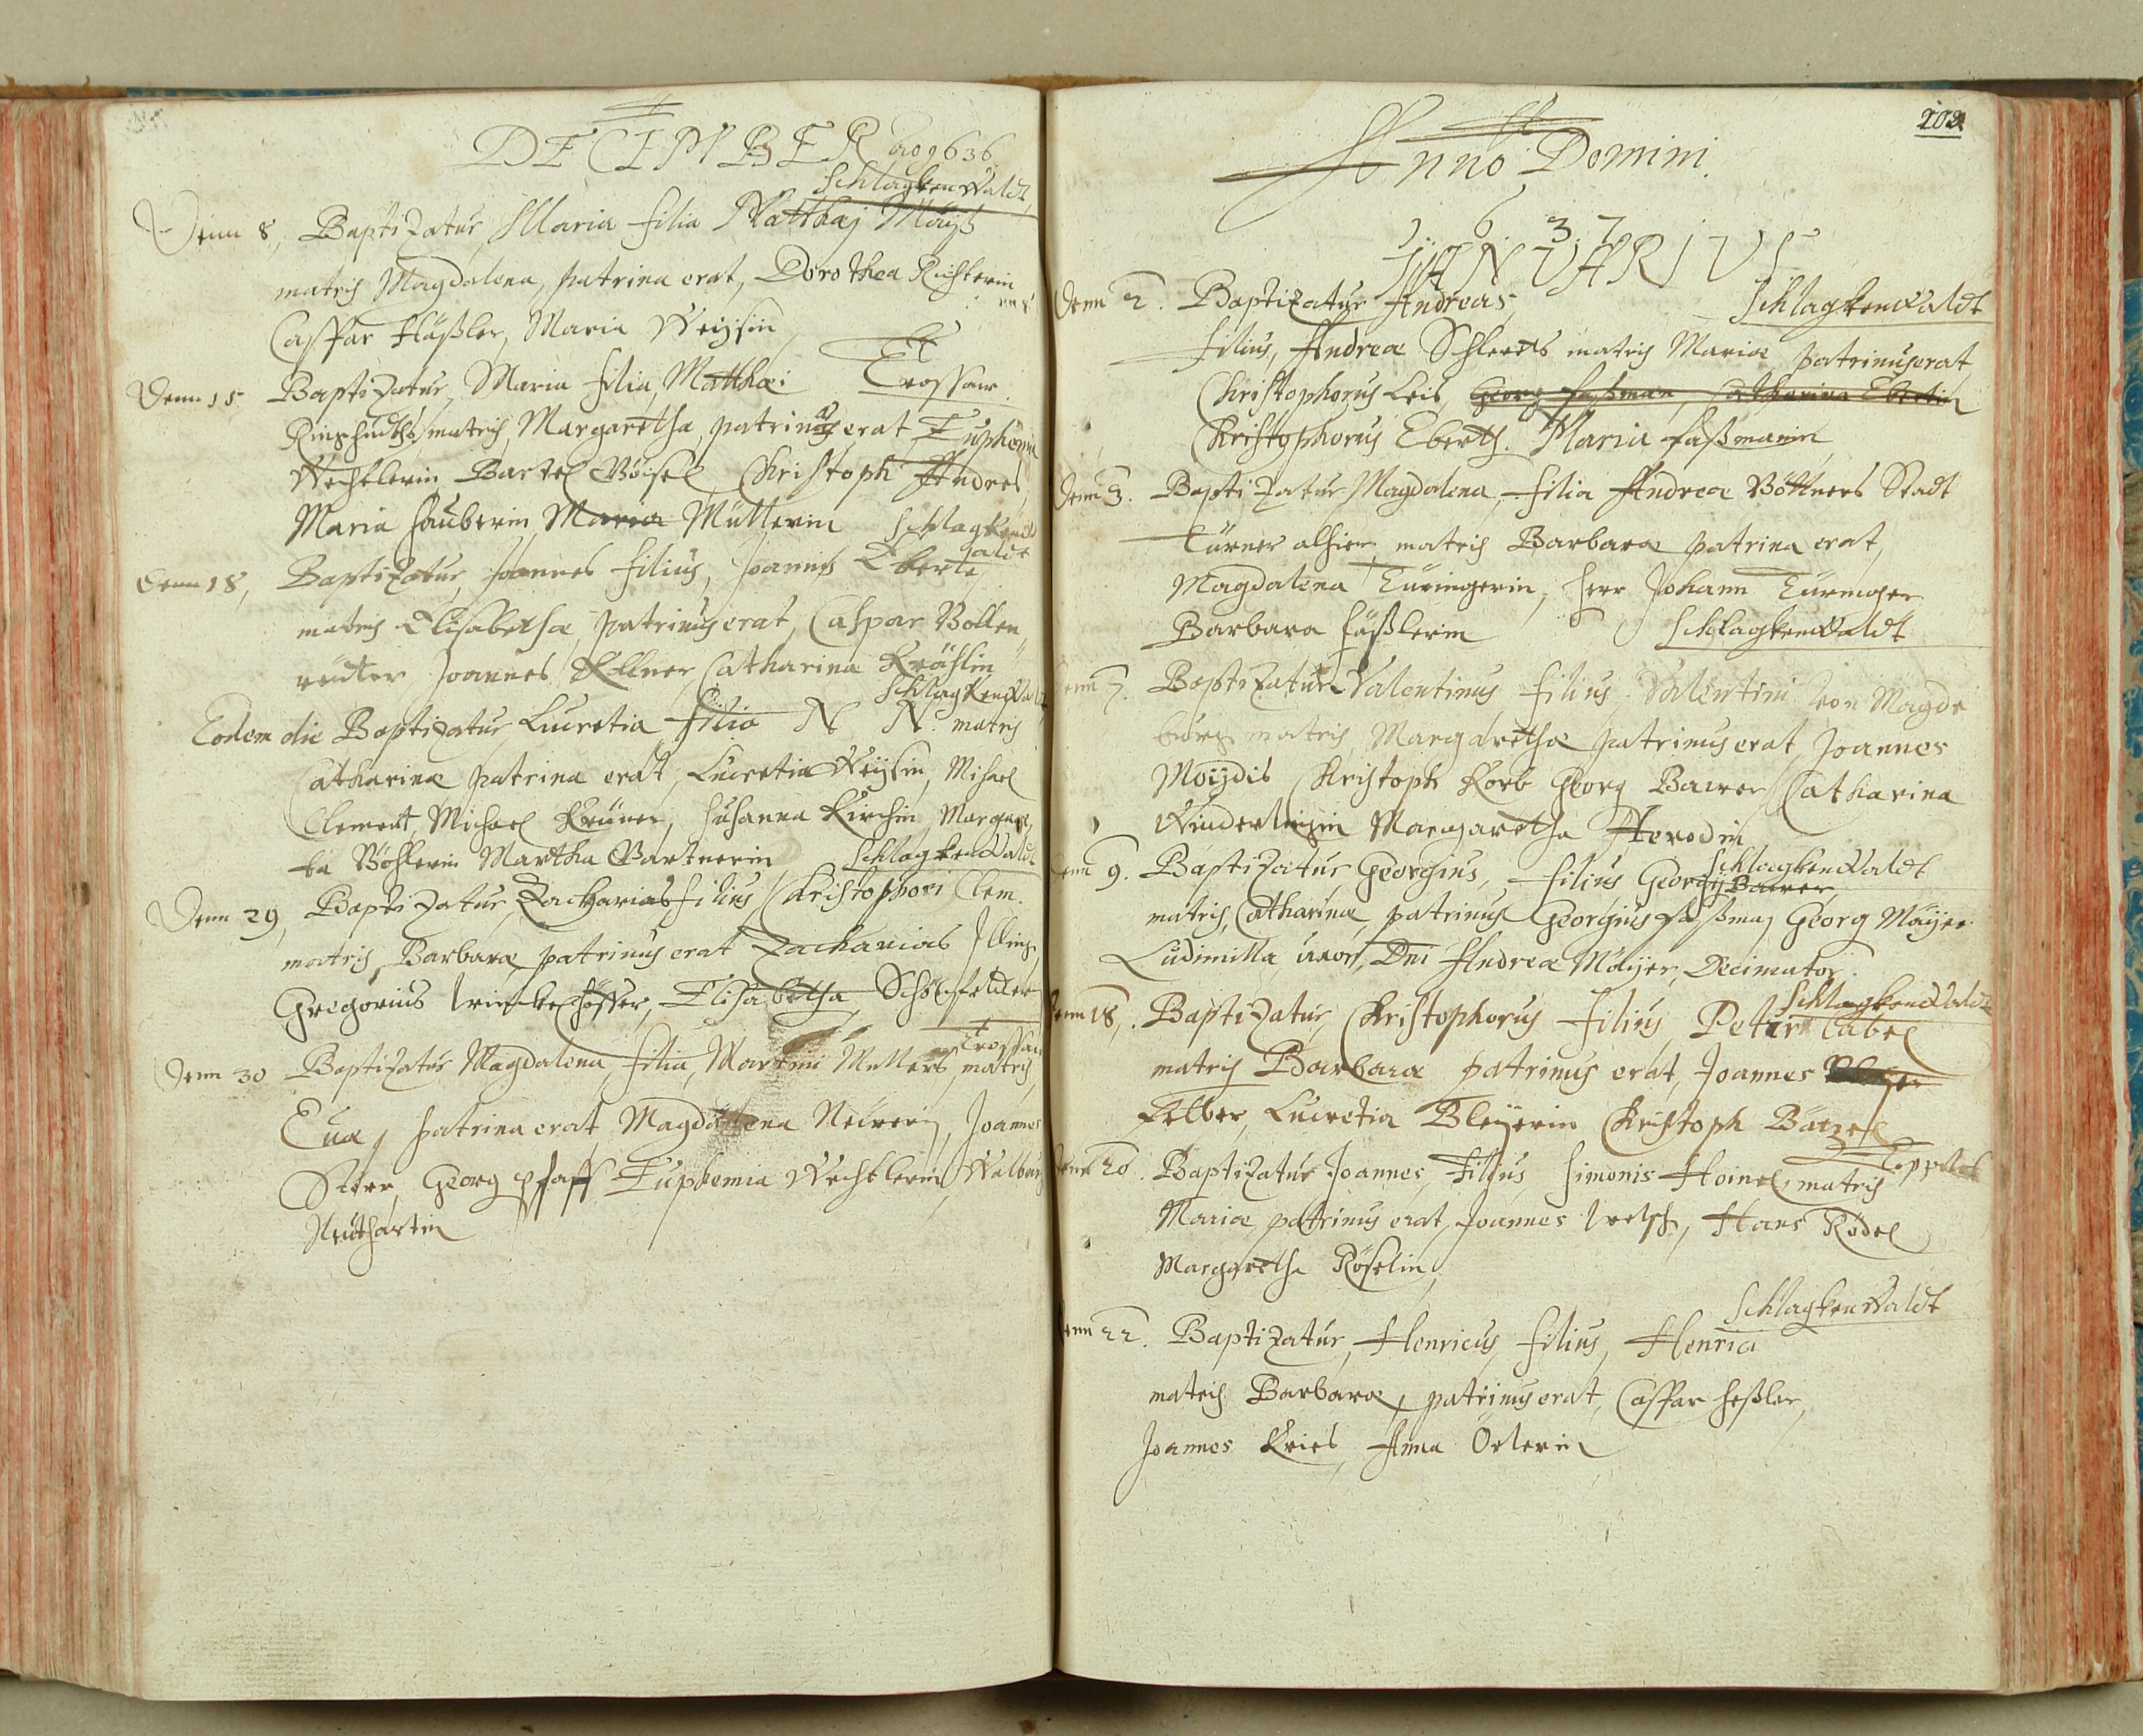 DECEMBER ao 1636
Schlagkenwaldt
Denn 8, Baptizatur Maria filia Matthaj Maÿß
matris Magdalena, patrina erat, Dorothea Richterin
Caspar Häßler, Maria Weijsin
Trossaw
Denn 15 Baptizatur Maria filia, Matthæi
matris, Margaretha, patrinus erat Euphemia
Wechtlerin Bartel Christoph Andres,
Maria Hauberin Maria Müllerin Schlagkenw
aldt
Denn 18, Baptizatur Joannes filius, Joannis Eberts,
matris Elisabethæ, patrinus erat, Caspar Bollen
reütter Joannes Köllner Catharina Kröhlin
Schlagkenwaldt
Eodem die Baptizatur Lucretia filia N N. matris
Catharinæ patrina erat, Lucretia Weijsin, Michael
Clement, Michael Susanna Kirchin Margare
ta Böhlerin Martha Gartnerin Schlagkenwaldt
Denn 29, Baptizatur, Zacharias filius, Christophori Clem.
matris Barbaræ patrinus erat Zacharias Illing,
Gregorius Elisabetha Schönfelder
Trossaw
Denn 30 Baptizatur Magdalena, filia, Martini Mullers, matris
Eua, patrina erat Magdalena Joannes
Georg Pfaff Euphemia Wechtlerin, Walburg
Neüthartin
102
Anno Domini
1. 6. 3. 7
JANUARIUS
Denn 2. Baptizatur Andreas, Schlagkenwaldt
filius, Andreæ Schlerets matris Mariæ patrinus erat
Christophorus Leis, Georg Faßman, Catharina Ebertin
Christophorus Eberth. Maria Faßmanin
Denn 3. Baptizatur Magdalena, filia Andreæ Böttners Stadt
Türner alhier, matris Barbaræ patrina erat,
Magdalena Türingerin, Herr Johann Türinger
Barbara Häßlerin Schlagkenwaldt
Denn 7. Baptizatur Valentinus filius Valentini von Magde
burg matris Margarethæ patrinus erat Joannes
Moÿdis Christoph Korb Georg Bawer Catharina
Margaretha Herodin
Schlagkenwaldt
Denn 9. Baptizatur Georgius, filius Georgij Bawer,
matris, Catharinæ, patrinus Georgius Faßman Georg Maÿer
Ludimilla uxor, Dni Andreæ Maÿer, Decimator.
Schlagkenwaldt
Denn 18, Baptizatur, Christophorus filius Peter Zabel
matris Barbaræ patrinus erat, Joannes
Felber, Lucretia Bleÿerin Christoph Bützel
Töppeles
Denn 20. Baptizatur Joannes, Filius Simonis Hoinel, matris
Mariæ, patrinus erat, Joannes Hans Rödel
Margaretha Röselin,
Schlagkenwaldt
Denn 22. Baptizatur, Henricus, filius, Henrici
matris Barbaræ, patrinus erat, Caspar Heßler,
Joannes Kries, Anna Örlerin